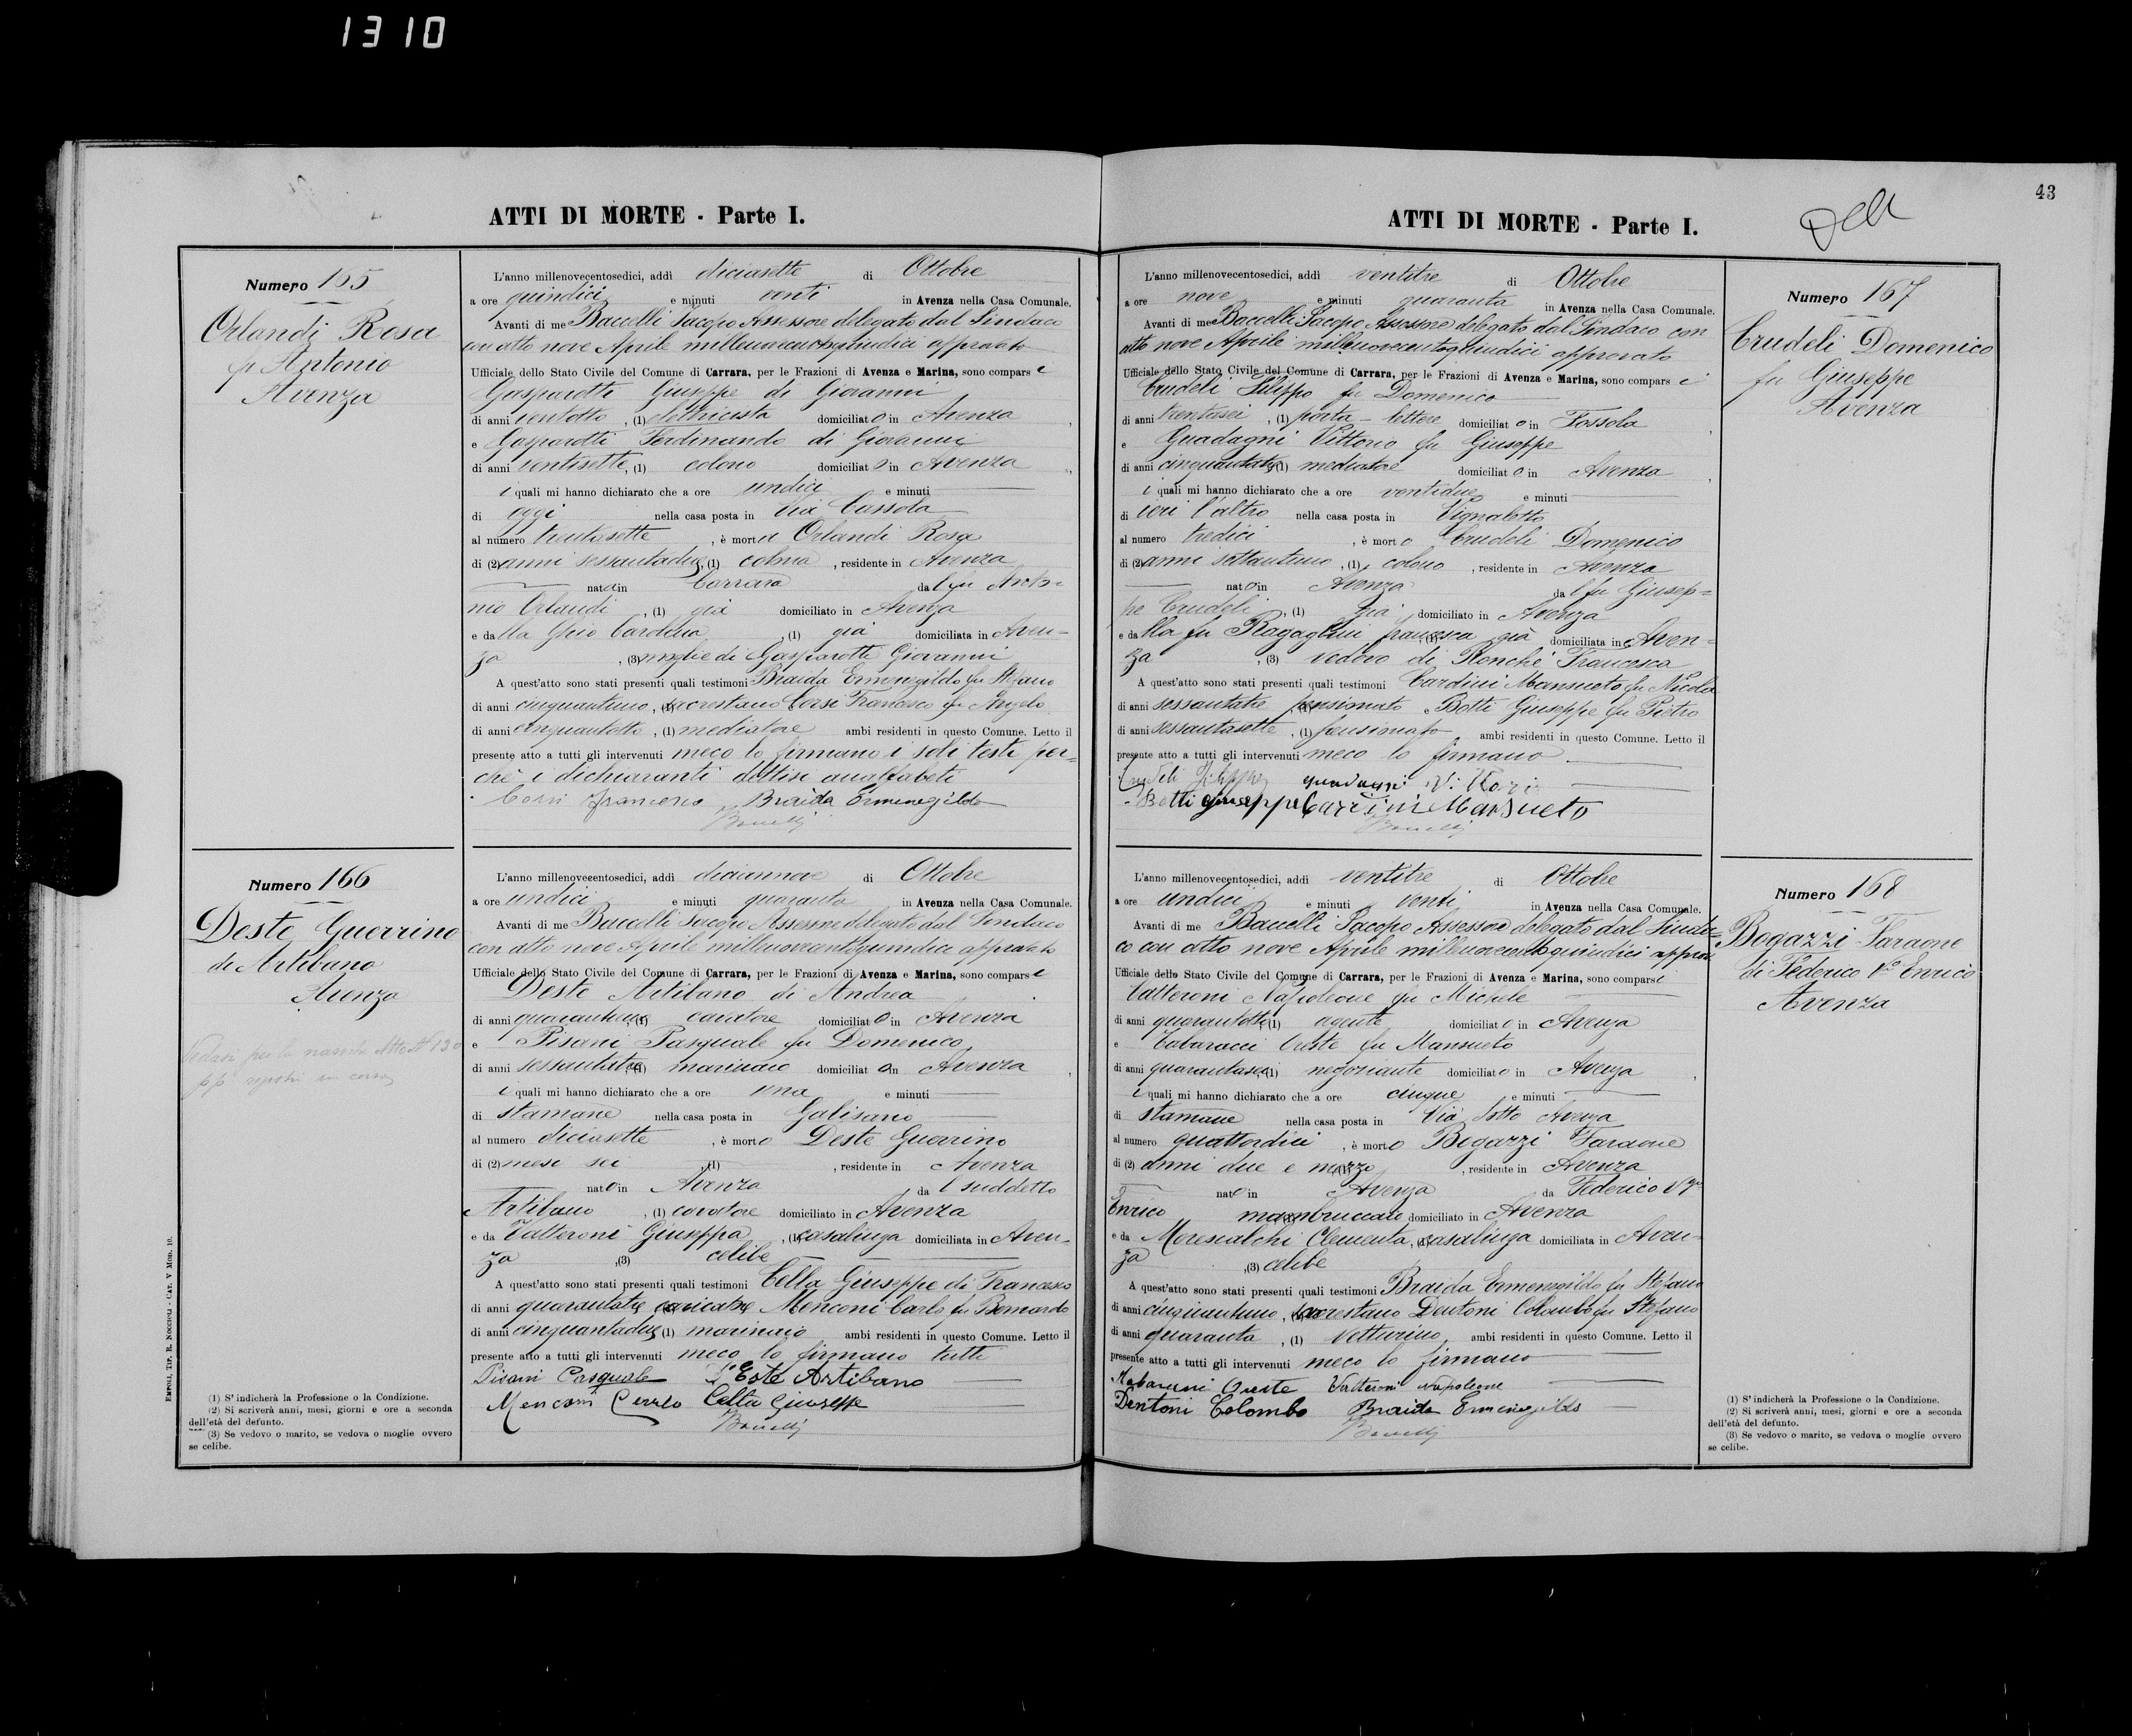 1310
ATTI DI MORTE - Parte I.
Numero 165
Orlandi Rosa
fu Antonio
Avenza
L'anno millenovecentosedici, addì diciasette di Ottobre
a ore quindici e minuti venti in Avenza nella Casa Comunale.
Avanti di me Baccelli Jacopo Assessore delegato dal Sindaco
con atto nove Aprile millenovecentoquindici approvato
Ufficiale dello Stato Civile del Comune di Carrara, per le Frazioni di Avenza e Marina, sono comparsi
Gasparotti Giuseppe di Giovanni
di anni ventotto, (1) elettricista domiciliato in Avenza,
e Gasparotti Ferdinando di Giovanni
di anni ventisette, (1) colono domiciliato in Avenza,
i quali mi hanno dichiarato che a ore undici e minuti
di oggi nella casa posta in Via Cassola
al numero trentasette, è morta Orlandi Rosa
di (2) anni sessantadue, (1) colona, residente in Avenza
nata in Carrara dal fu Anto=
nio Orlandi, (1) già domiciliato in Avenza
e dalla Ghio Cardelia (1) già domiciliata in Aven=
za, (3) moglie di Gasparotti Giovanni
A quest'atto sono stati presenti quali testimoni Braida Ermenegildo fu Stefano
di anni cinquantuno, (1) sacrestano Corsi Francesco fu Angelo
di anni cinquantotto, (1) mediatore ambi residenti in questo Comune. Letto il
presente atto a tutti gli intervenuti meco lo firmano i soli testi per=
chè i dichiaranti dettisi analfabeti
Corsi Francesco Braida Ermenegildo
Baccelli
Numero 166
Deste Guerrino
di Artibano
Avenza
Vedasi per la nascita Atto N 130
pp registri in corso
L'anno millenovecentosedici, addì diciannove di Ottobre
a ore undici e minuti quaranta in Avenza nella Casa Comunale.
Avanti di me Baccelli Jacopo Assessore delegato dal Sindaco
con atto nove Aprile millenovecentoquindici approvato
Ufficiale dello Stato Civile del Comune di Carrara, per le Frazioni di Avenza e Marina, sono comparsi
Deste Artibano di Andrea
di anni quarantuno, (1) cavatore domiciliato in Avenza
e Pisani Pasquale fu Domenico
di anni sessantatre (1) marinaio domiciliato in Avenza,
i quali mi hanno dichiarato che a ore una e minuti
di stamane nella casa posta in Galisano
al numero diciasette, è morto Deste Guerrino
di (2) mesi sei, (1), residente in Avenza
nato in Avenza da l suddetto
Artibano, (1) cavatore domiciliato in Avenza
e da Valteroni Giuseppa, (1) casalinga domiciliata in Aven=
za, (3) celibe
A quest'atto sono stati presenti quali testimoni Cella Giuseppe di Francesco
di anni quarantatre (1) caricatore Menconi Carlo fu Bernardo
di anni cinquantadue (1) marinaio ambi residenti in questo Comune. Letto il
presente atto a tutti gli intervenuti meco lo firmano tutti
Pisani Pasquale D'Este Artibano
Menconi Carlo Cella Giuseppe
Baccelli
EMPOLI, TIP. R. NOCCIOLI - CAT. V MOD. 10.
(1) S'indicherà la Professione o la Condizione.
(2) Si scriverà anni, mesi, giorni e ore a seconda
dell'età del defunto.
(3) Se vedovo o marito, se vedova o moglie ovvero
se celibe.
43
ATTI DI MORTE - Parte I.
Numero 167
Crudeli Domenico
fu Giuseppe
Avenza
L'anno millenovecentosedici, addì ventitre di Ottobre
a ore nove e minuti quaranta in Avenza nella Casa Comunale.
Avanti di me Baccelli Jacopo Assessore delegato dal Sindaco con
atto nove Aprile millenovecentoquindici approvato
Ufficiale dello Stato Civile del Comune di Carrara, per le Frazioni di Avenza e Marina, sono comparsi
Crudeli Filippo fu Domenico
di anni trentasei, (1) porta-lettere domiciliato in Fossola
e Guadagni Vittorio fu Giuseppe
di anni cinquantatre (1) mediatore domiciliato in Avenza,
i quali mi hanno dichiarato che a ore ventidue e minuti
di ieri l'altro nella casa posta in Vignaletto
al numero tredici, è morto Crudeli Domenico
di (2) anni settantuno, (1) colono, residente in Avenza
nato in Avenza dal fu Giusep=
pe Crudeli, (1) già domiciliato in Avenza
e dalla fu Ragaglini Francesca già domiciliata in Aven=
za, (3) vedovo di Ronchi Francesca
A quest'atto sono stati presenti quali testimoni Cardini Mansueto fu Nicola
di anni sessantatre pensionato e Botti Giuseppe fu Pietro
di anni sessantasette, (1) pensionato, ambi residenti in questo Comune. Letto il
presente atto a tutti gli intervenuti meco lo firmano
Crudeli Filippo guadagni Vittorio
Botti giuseppe Cardini Mansueto
Baccelli
Numero 168
Bogazzi Faraone
di Federico Vo Enrico
Avenza
L'anno millenovecentosedici, addì ventitre di Ottobre
a ore undici e minuti venti in Avenza nella Casa Comunale.
Avanti di me Baccelli Jacopo Assessore delegato dal Sinda=
co con atto nove Aprile millenovecentoquindici approv
Ufficiale dello Stato Civile del Comune di Carrara, per le Frazioni di Avenza e Marina, sono comparsi
Valteroni Napoleone fu Michele
di anni quarantotto (1) agente domiciliato in Avenza
e Tabaracci Oreste fu Mansueto
di anni quarantasei (1) negoziante domiciliato in Avenza,
i quali mi hanno dichiarato che a ore cinque e minuti
di stamane nella casa posta in Via Sotto Avenza
al numero quattordici, è morto Bogazzi Faraone
di (2) anni due e mezzo, residente in Avenza
nato in Avenza da Federico Vo
Enrico domiciliato in Avenza
e da Morescalchi Clementa, (1) casalinga domiciliata in Aven=
za, (3) celibe
A quest'atto sono stati presenti quali testimoni Braida Ermenegildo fu Stefano
di anni cinquantuno, (1) sacrestano Dentoni Colombo fu Stefano
di anni quaranta, (1) Vetturino, ambi residenti in questo Comune. Letto il
presente atto a tutti gli intervenuti meco lo firmano
Tabaracci Oreste Valteroni Napoleone
Dentoni Colombo Braida Ermenegildo
Baccelli
(1) S'indicherà la Professione o la Condizione.
(2) Si scriverà anni, mesi, giorni e ore a seconda
dell'età del defunto.
(3) Se vedovo o marito, se vedova o moglie ovvero
se celibe.